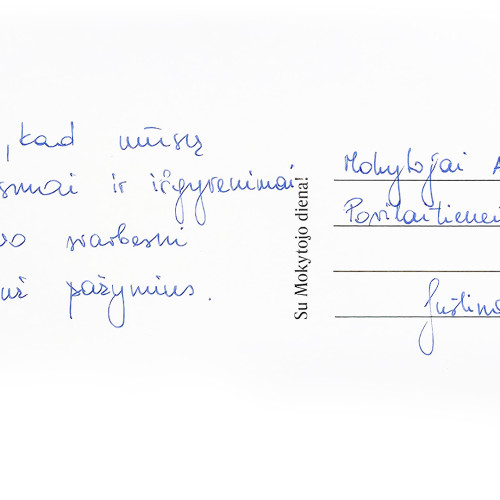 , kad mūsų
smai ir išgyvenimai
vo svarbesni
už pažymius.
Su Mokytojo diena!
Mokytojai A
Povilaitienei
Justina